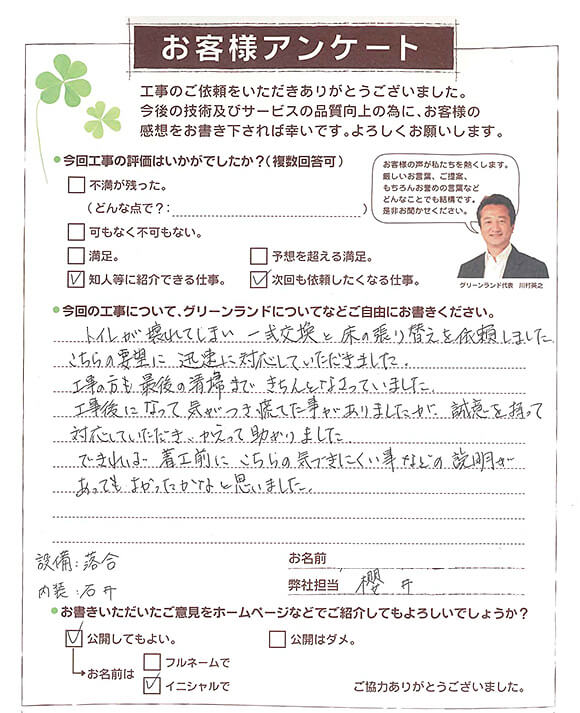 お客様アンケート
工事のご依頼をいただきありがとうございました。
今後の技術及びサービスの品質向上の為に、お客様の
感想をお書き下されば幸いです。よろしくお願いします。
今回工事の評価はいかがでしたか？（複数回答可）
不満が残った。
（どんな点で？：）
可もなく不可もない。
満足。
予想を超える満足。
知人等に紹介できる仕事。
次回も依頼したくなる仕事。
お客様の声が私たちを熱くします。
厳しいお言葉、ご提案、
もちろんお誉めの言葉など
どんなことでも結構です。
是非お聞かせください。
グリーンランド代表 川村英之
今回の工事について、グリーンランドについてなどご自由にお書きください。
トイレが壊れてしまい 一式交換と床の張り替えを依頼しました
こちらの要望に 迅速に対応していただきました。
工事の方も最後の清掃まで きちんとなさっていました。
工事後になって気がつき慌てた事がありましたが 誠意を持って
対応していただき、かえって助かりました
できれば 着工前に こちらの気づきにくい事などの 説明が
あってもよかったかなと思いました。
設備：落合
内装：石井
お名前
弊社担当 櫻井
お書きいただいたご意見をホームページなどでご紹介してもよろしいでしょうか？
公開してもよい。
公開はダメ。
お名前は
フルネームで
イニシャルで
ご協力ありがとうございました。